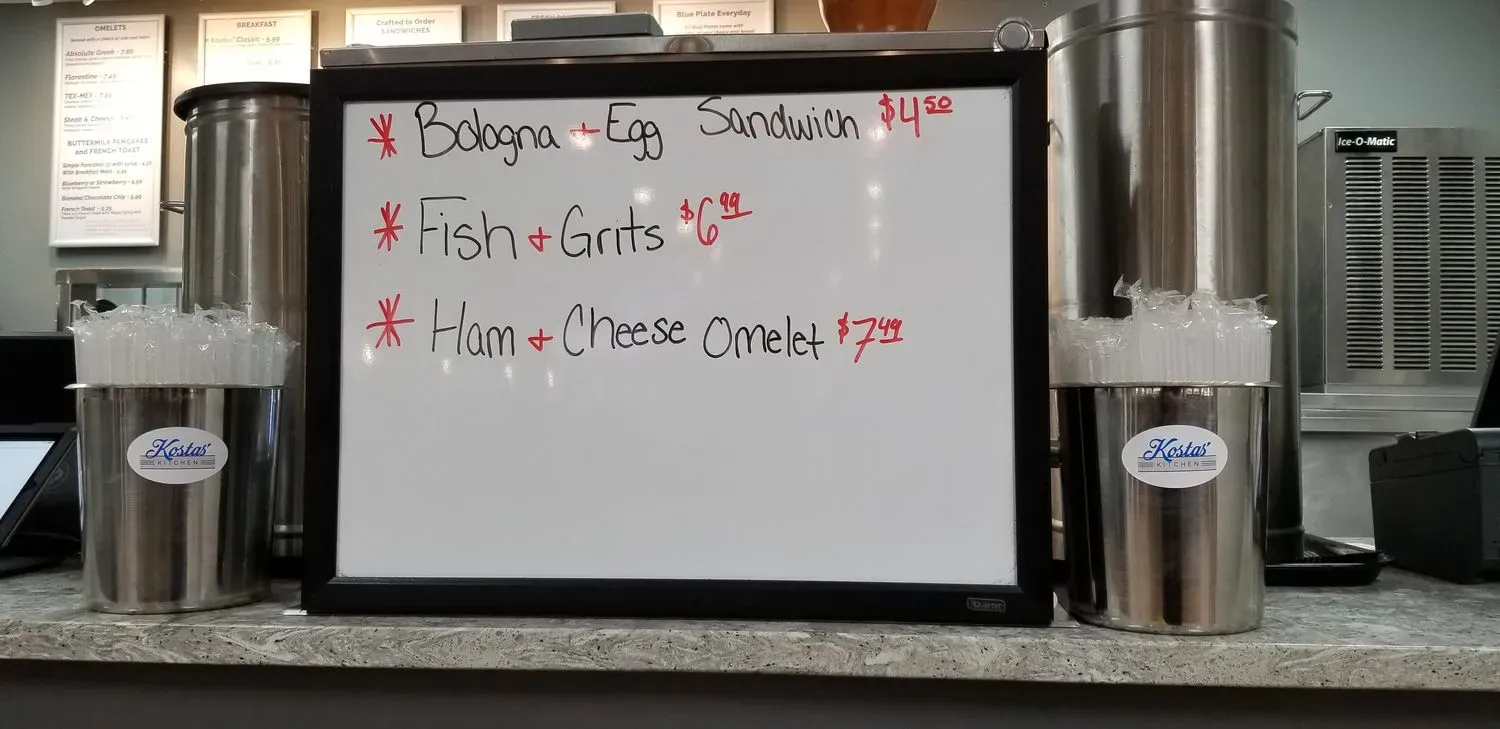 OMELETS
Absolute Greek - 7.89
Florentine - 7.45
TEX-MEX
Steak & Cheese
BUTTERMILK PANCAKES
and FRENCH TOAST
With Breakfast Meat
Blueberry or Strawberry - 5.50
Banana Chocolate Chip - 5.99
French Toast - 5.75
BREAKFAST
Kostas' Classic - 5.99
Crafted to Order
SANDWICHES
Blue Plate Everyday
* Bologna + Egg Sandwich $4.50
* Fish + Grits $6.99
* Ham + Cheese Omelet $7.49
Quartet
Kostas'
KITCHEN
Kostas'
KITCHEN
Ice-O-Matic